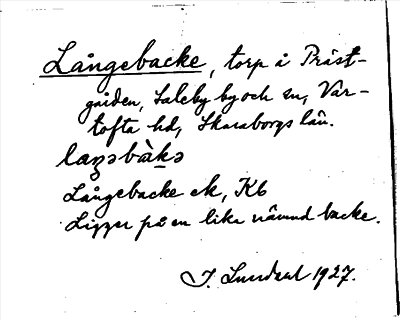 Långebacke, torp å Präst-
gården, Saleby by och sn, Var-
tofta hd, Skaraborgs län.
laŋəbàkə
Långebacke ek, Kb
Ligger på en lika nämnd backe.
J. Lundahl 1927.